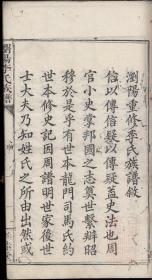 瀏陽重修李氏族譜敘
信以傳信疑以傳疑蓋史法也周
官小史掌邦國之志奠世繫辯昭
穆於是乎有世本龍門司馬氏約
世本修史記因周譜明世家後世
士大夫乃知姓氏之所由出然或
瀏陽李氏族譜